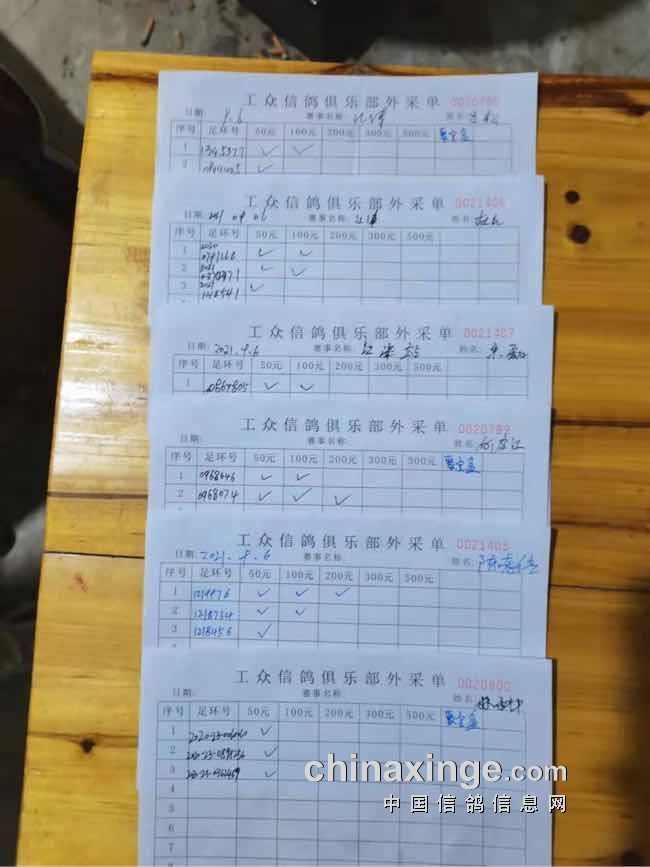 工众信鸽俱乐部外采单 0020786
日期: 9.6 赛事名称: 江津 姓名:
序号 足环号 50元 100元 200元 300元 500元 聚宝盆
1 ✓ ✓
2 ✓
工众信鸽俱乐部外采单 0021406
日期: 2021.09.06 赛事名称: 江津 姓名:
序号 足环号 50元 100元 200元 300元 500元
1 2020 ✓ ✓
2 2021 ✓ ✓
3 2021 ✓
工众信鸽俱乐部外采单 0021407
日期: 2021.9.6 赛事名称: 江津站 姓名:
序号 足环号 50元 100元 200元 300元 500元
1 0867805 ✓ ✓
工众信鸽俱乐部外采单 0020799
日期: 赛事名称: 姓名:
序号 足环号 50元 100元 200元 300元 500元 聚宝盆
1 0968646 ✓ ✓
2 0968074 ✓ ✓ ✓
工众信鸽俱乐部外采单 0021405
日期: 2021.9.6 赛事名称: 姓名:
序号 足环号 50元 100元 200元 300元 500元
1 ✓ ✓ ✓
2 1218734 ✓ ✓
3 1218456 ✓
工众信鸽俱乐部外采单 0020800
日期: 赛事名称: 姓名:
序号 足环号 50元 100元 200元 300元 500元 聚宝盆
1 ✓
2 ✓
3 ✓
4
5
6
7
8
chinaxinge.com
中国信鸽信息网